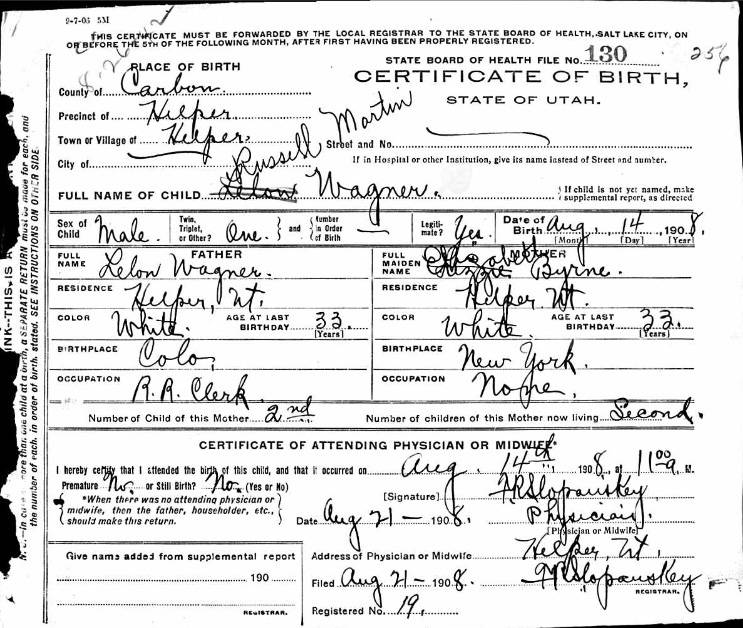 9-7-05 5M
THIS CERTIFICATE MUST BE FORWARDED BY THE LOCAL REGISTRAR TO THE STATE BOARD OF HEALTH, SALT LAKE CITY, ON
OR BEFORE THE 5TH OF THE FOLLOWING MONTH, AFTER FIRST HAVING BEEN PROPERLY REGISTERED.
256
PLACE OF BIRTH
STATE BOARD OF HEALTH FILE No. 130
County of Carbon
CERTIFICATE OF BIRTH,
STATE OF UTAH.
Precinct of Helper
Town or Village of Helper.
Street and No.
City of
If in Hospital or other Institution, give its name instead of Street and number.
Russell Martin
FULL NAME OF CHILD Lelon Wagner.
{If child is not yet named, make supplemental report, as directed
Sex of Child Male. Twin, Triplet, or Other? One. and Number in Order of Birth — Legiti-mate? Yes. Date of Birth Aug 14 1908.
(Month) (Day) (Year)
FATHER
FULL NAME Lelon Wagner.
MOTHER
FULL MAIDEN NAME Elizabeth Lizzie Byrne.
RESIDENCE Helper, Ut.
RESIDENCE Helper Ut.
COLOR White. AGE AT LAST BIRTHDAY 33 (Years)
COLOR White. AGE AT LAST BIRTHDAY 33. (Years)
BIRTHPLACE Colo.
BIRTHPLACE New York.
OCCUPATION R.R. Clerk
OCCUPATION None.
Number of Child of this Mother 2nd
Number of children of this Mother now living Second.
CERTIFICATE OF ATTENDING PHYSICIAN OR MIDWIFE*
I hereby certify that I attended the birth of this child, and that it occurred on Aug. 14th, 1908, at 11 00 a. M.
Premature No. or Still Birth? No. (Yes or No)
{*When there was no attending physician or midwife, then the father, householder, etc., should make this return.}
[Signature]
Physician.
[Physician or Midwife]
Date Aug 21 — 1908.
Give name added from supplemental report
190
REGISTRAR.
Address of Physician or Midwife Helper, Ut.
Filed Aug 21 — 1908.
REGISTRAR.
Registered No. 19.
more than one child at a birth, a SEPARATE RETURN must be made for each, and
the number of each, in order of birth, stated. SEE INSTRUCTIONS ON OTHER SIDE.
INK--THIS IS A